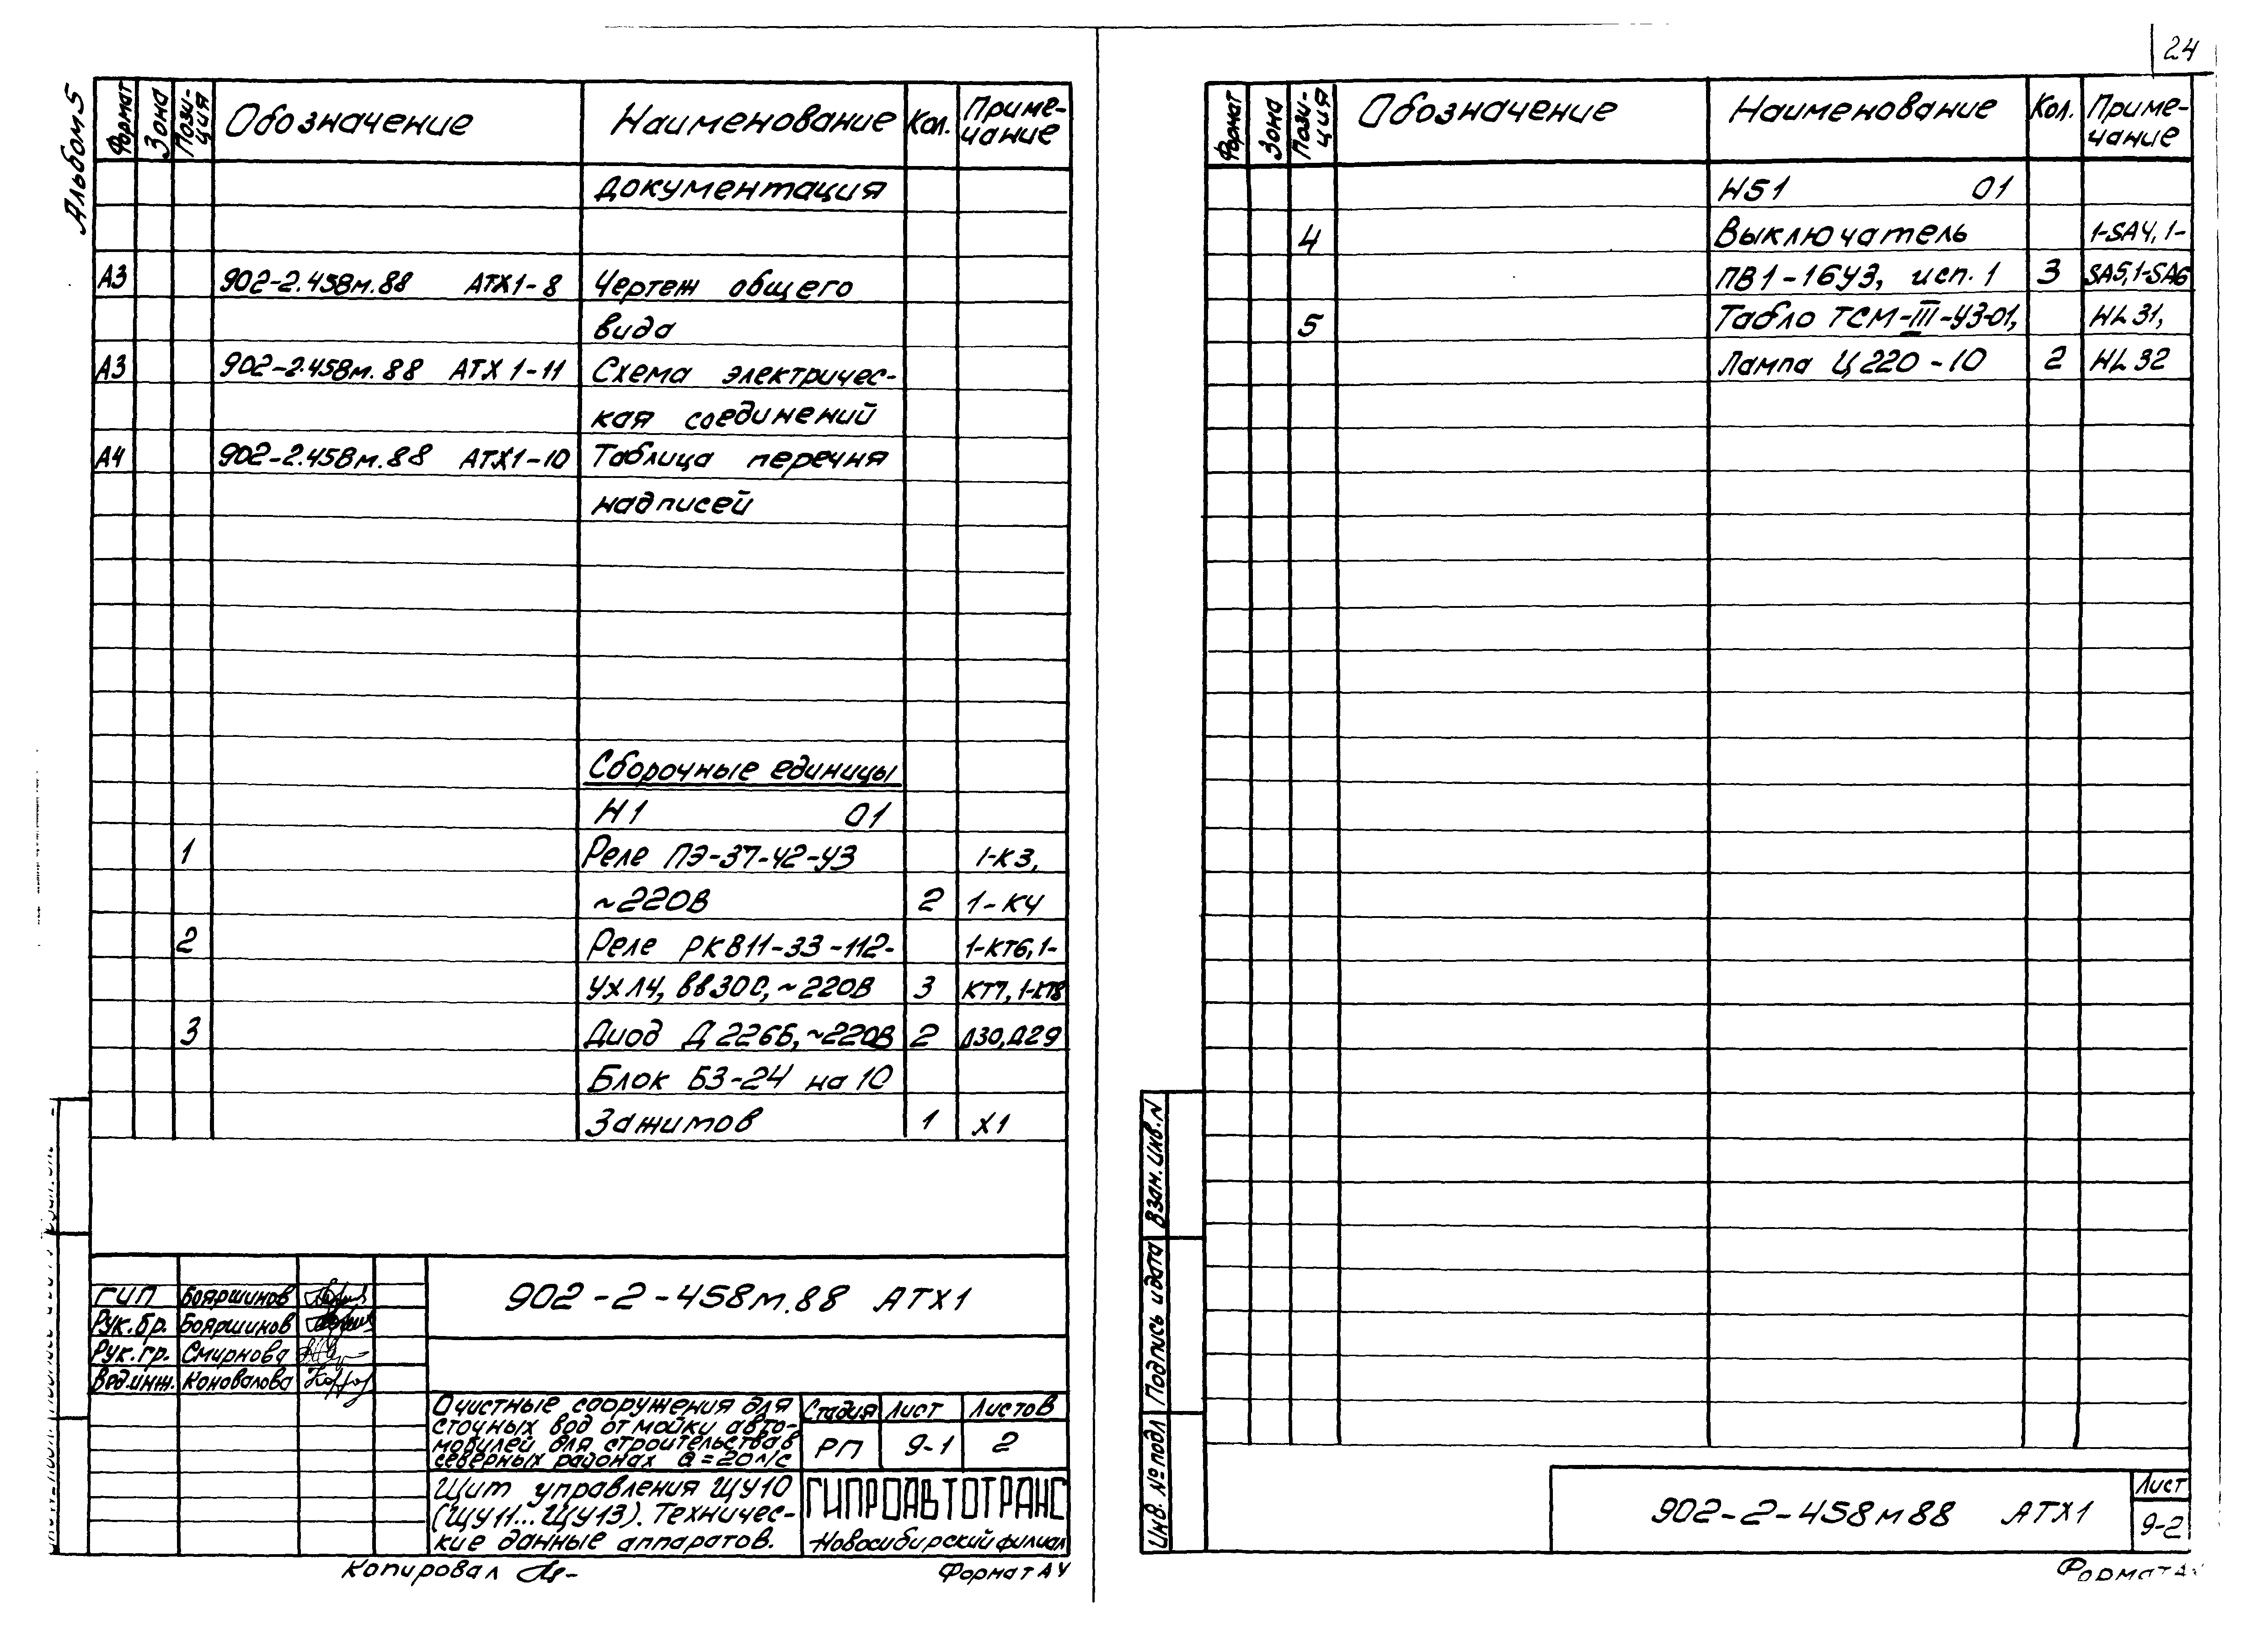 24
Альбом 5
Формат Зона Пози-ция Обозначение Наименование Кол. Приме-чание
Документация
А3 902-2.458м.88 АТХ1-8 Чертеж общего
вида
А3 902-2.458м.88 АТХ1-11 Схема электричес-
кая соединений
А4 902-2.458м.88 АТХ1-10 Таблица перечня
надписей
Сборочные единицы
Н1 01
1 Реле ПЭ-37-42-У3 1-К3,
~220В 2 1-К4
2 Реле РКВ11-33-112- 1-КТ6, 1-
УХЛ4, ВВ30С, ~220В 3 КТ7, 1-КТ8
3 Диод Д226Б, ~220В 2 Д30, Д29
Блок БЗ-24 на 10
Зажимов 1 Х1
902-2-458м.88 АТХ1
ГИП Бояршинов
Рук.бр. Бояршинов
Рук.гр. Смирнова
Вед.инж. Коновалова
Очистные сооружения для
сточных вод от мойки авто-
мобилей для строительства в
северных районах Q=20л/с
Стадия Лист Листов
РП 9-1 2
Щит управления ЩУ10
(ЩУ11...ЩУ13). Техничес-
кие данные аппаратов.
ГИПРОАВТОТРАНС
Новосибирский филиал
Копировал
Формат А4
Формат Зона Пози-ция Обозначение Наименование Кол. Приме-чание
Н51 01
4 Выключатель 1-SA4, 1-
ПВ1-16У3, исп. 1 3 SA5, 1-SA6
5 Табло ТСМ-III-У3-01, HL31,
Лампа Ц220-10 2 HL32
Инв. № подл Подпись и дата Взам. инв. N
902-2-458м88 АТХ1
Лист
9-2
Формат А4